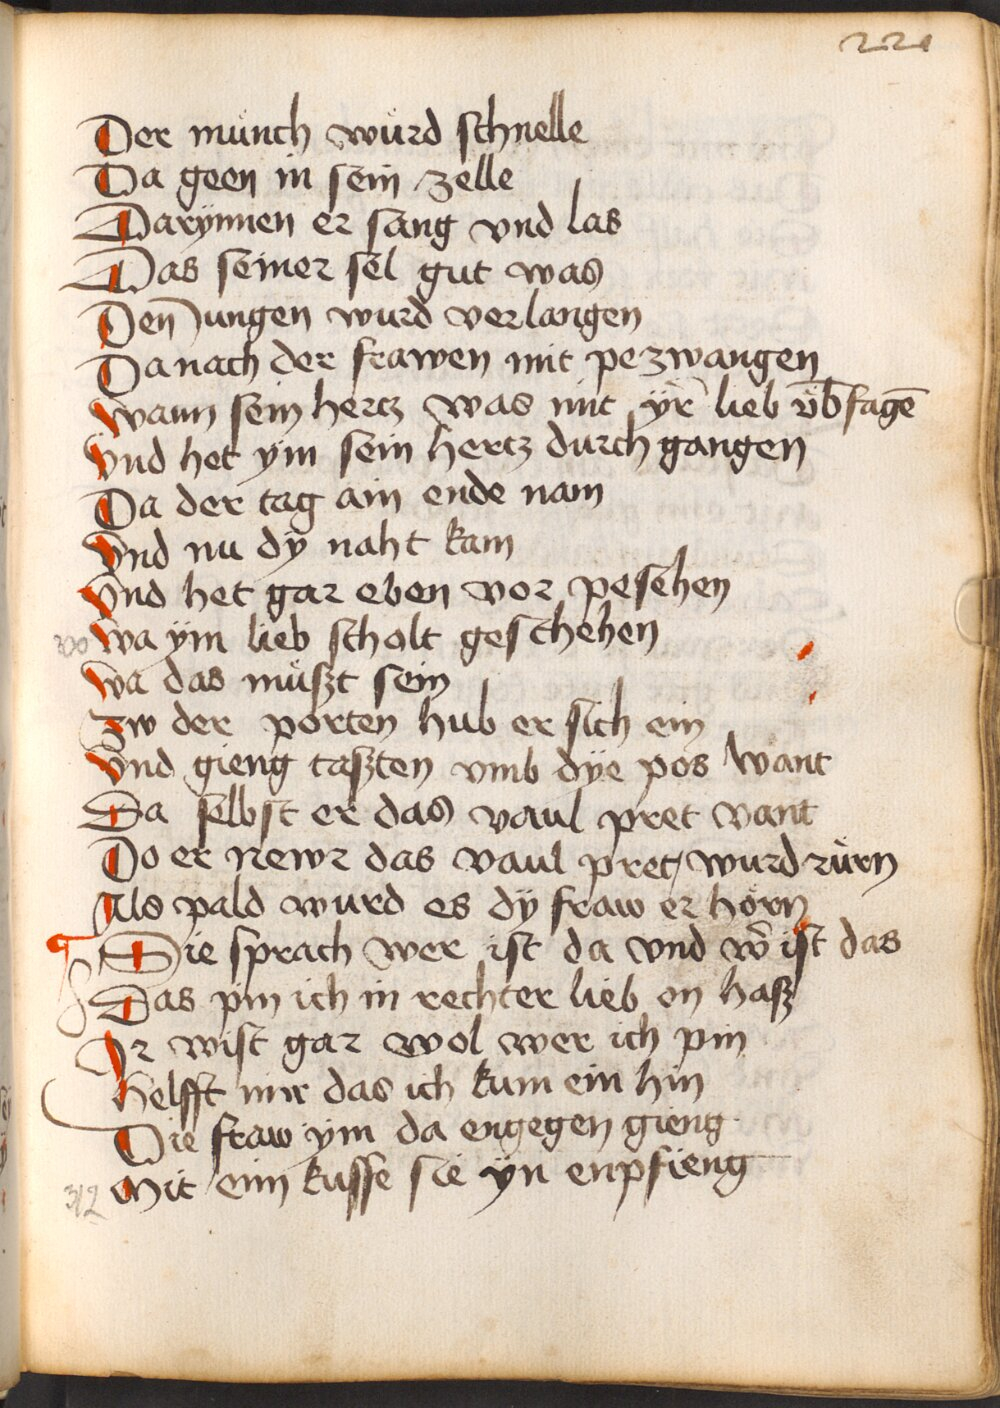 221
Der münch würd schnelle
Da geen in sein zelle
Darÿnnen er sang vnd las
Das seiner sel gut was
Den Jungen wurd verlangen
Da nach der frawen mit pezwangen
Wann sein hertz was mit ÿr lieb vͤb̄fagē
Vnd het ÿm sein hertz durch gangen
Da der tag ain ende nam
Vnd nu dÿ naht kam
Vnd het gar eben vor pesehen
Wa ÿm lieb scholt geschehen
Wa das müszt sein
Zw der porten hub er sich ein
Vnd gieng taszten vmb dÿe pos want
Da selbst er das vaul pret vant
Do er newr das vaul pret wurd rürn
Als pald wurd es dÿ fraw er hörn
Die sprach wer ist da vnd w̄ ist das
Das pin ich in rechter lieb on hasz
Ir wist gar wol wer ich pin
Helfft mir das ich kum ein hin
Die fraw ÿm da engegen gieng
Mit eim kusse sie ÿn enpfieng
312